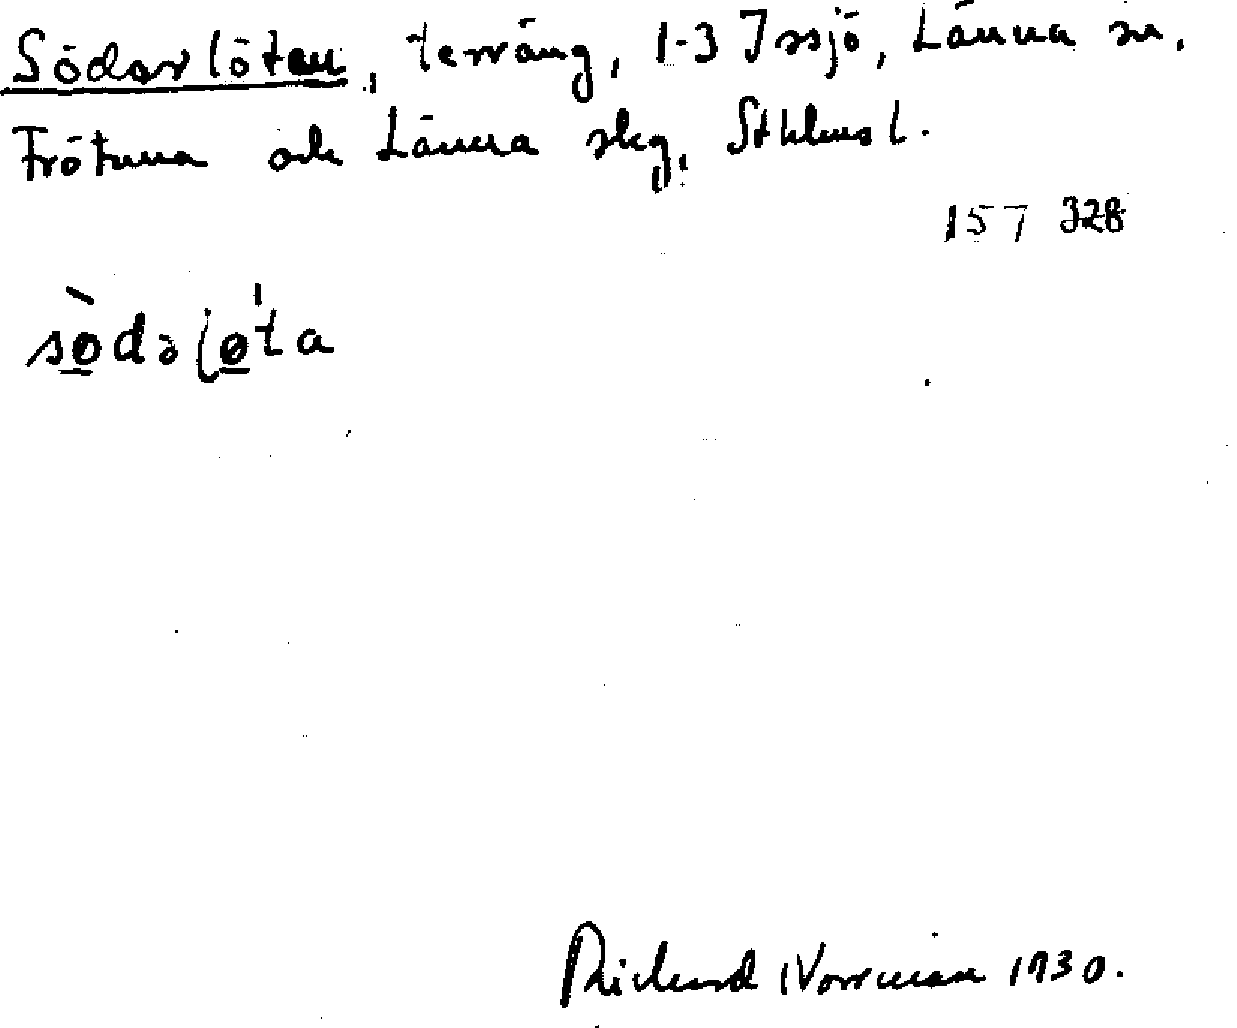 Söderlöten, terräng, 1-3 Issjö, Länna sn,
Frötuna och Länna skg, Sthlms l.
157 328
södəløta
Rickard Norrman 1930.